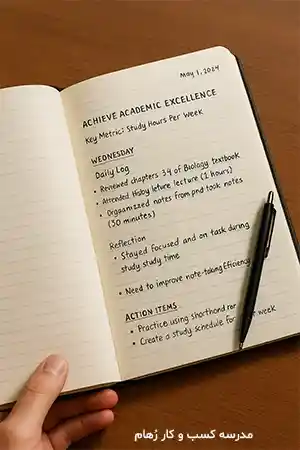 May 1, 2024
ACHIEVE ACADEMIC EXCELLENCE
Key Metric: Study Hours Per Week
WEDNESDAY
Daily Log
• Reviewed chapters 34 of Biology textbook
• Attended lecture (2 hours)
• Organized notes from and took notes
(30 minutes)
Reflection
• Stayed focused and on task during
study study time
• Need to improve note-taking efficiency
ACTION ITEMS
• Practice using shorthond
• Create a study schedule for week
مدرسه کسب و کار رُهام